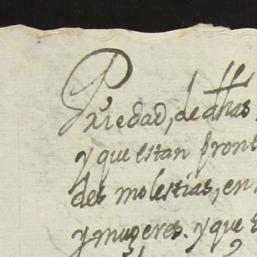 Pxiedad, de dhas
y que estan front
des molestias, en
y mugeres. y que